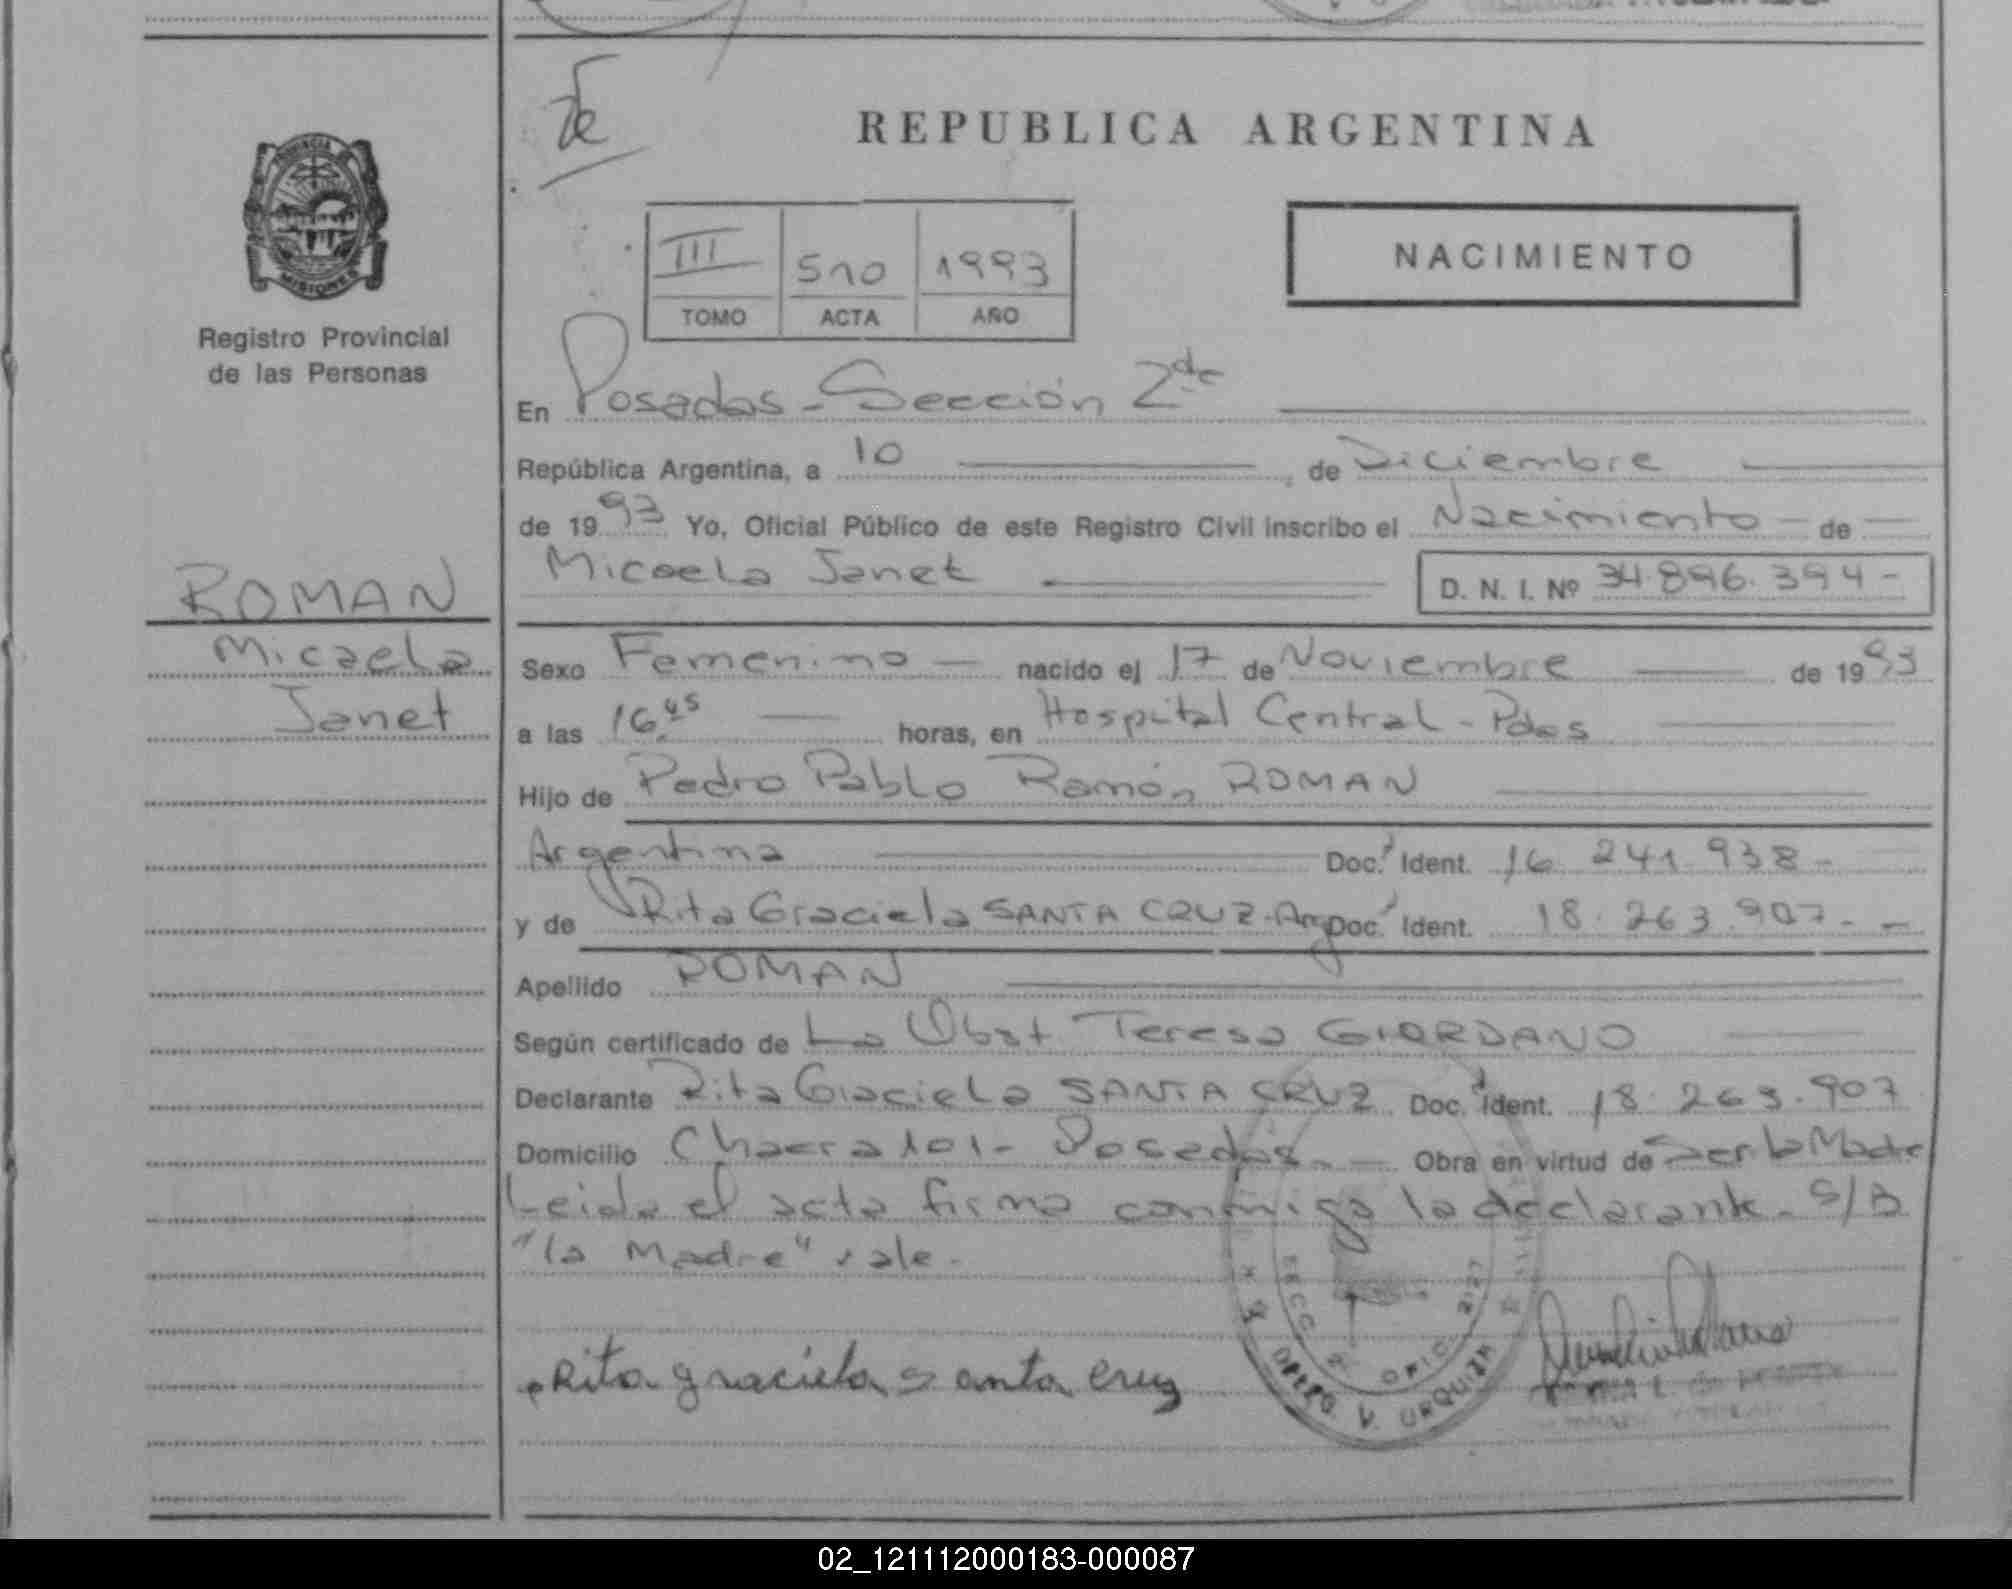 REPUBLICA ARGENTINA
PROVINCIA DE
MISIONES
Registro Provincial
de las Personas
III 510 1993
TOMO ACTA AÑO
NACIMIENTO
En Posadas - Sección 2da
República Argentina, a 10 , de Diciembre
de 1993 Yo, Oficial Público de este Registro Civil inscribo el Nacimiento - de -
Micaela Janet D. N. I. Nº 34.896.394 -
ROMAN
Micaela
Janet
Sexo Femenino - nacido el 17 de Noviembre de 1993
a las 16.45 horas, en Hospital Central - Pdas
Hijo de Pedro Pablo Ramón ROMAN
Argentina Doc. Ident. 16.241.938 -
y de Rita Graciela SANTA CRUZ - Arg Doc. Ident. 18.263.907 - -
Apellido ROMAN
Según certificado de La Obst Teresa GIORDANO
Declarante Rita Graciela SANTA CRUZ Doc. Ident. 18.263.907
Domicilio Chacra 101 - Posadas - Obra en virtud de Ser la Madre
Leida el acta firma conmigo la declarante. S/B
"la Madre" vale.
Rita graciela santa cruz
SECC. 2ª OFIC.
DPTO. V. URQUIZA
02_121112000183-000087